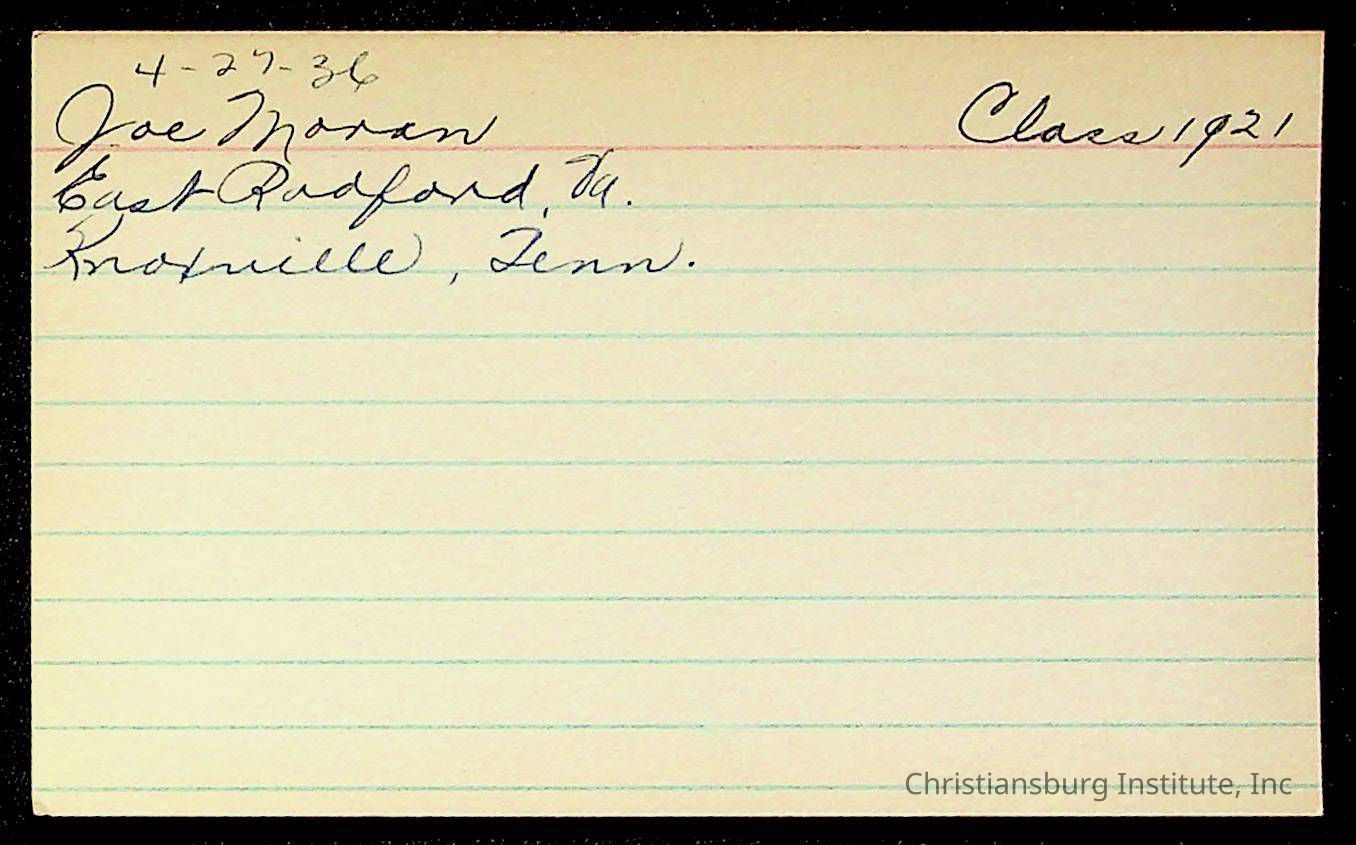 4-27-36
Joe Moran Class 1921
East Radford, Va.
Knoxville, Tenn.
Christiansburg Institute, Inc